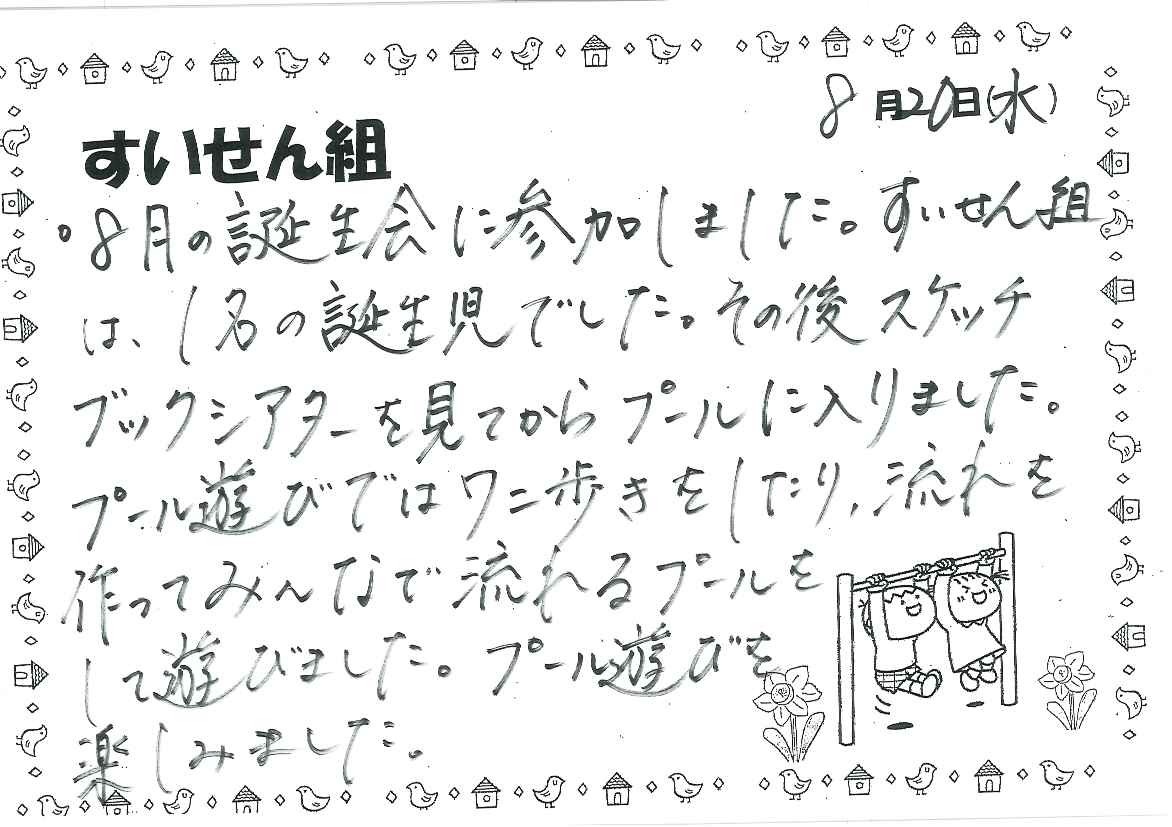 8月20日(水)
すいせん組
。8月の誕生会に参加しました。すいせん組
は、1名の誕生児でした。その後スケッチ
ブックシアターを見てからプールに入りました。
プール遊びではワニ歩きをしたり、流れを
作ってみんなで流れるプールを
して遊びました。プール遊びを
楽しみました。